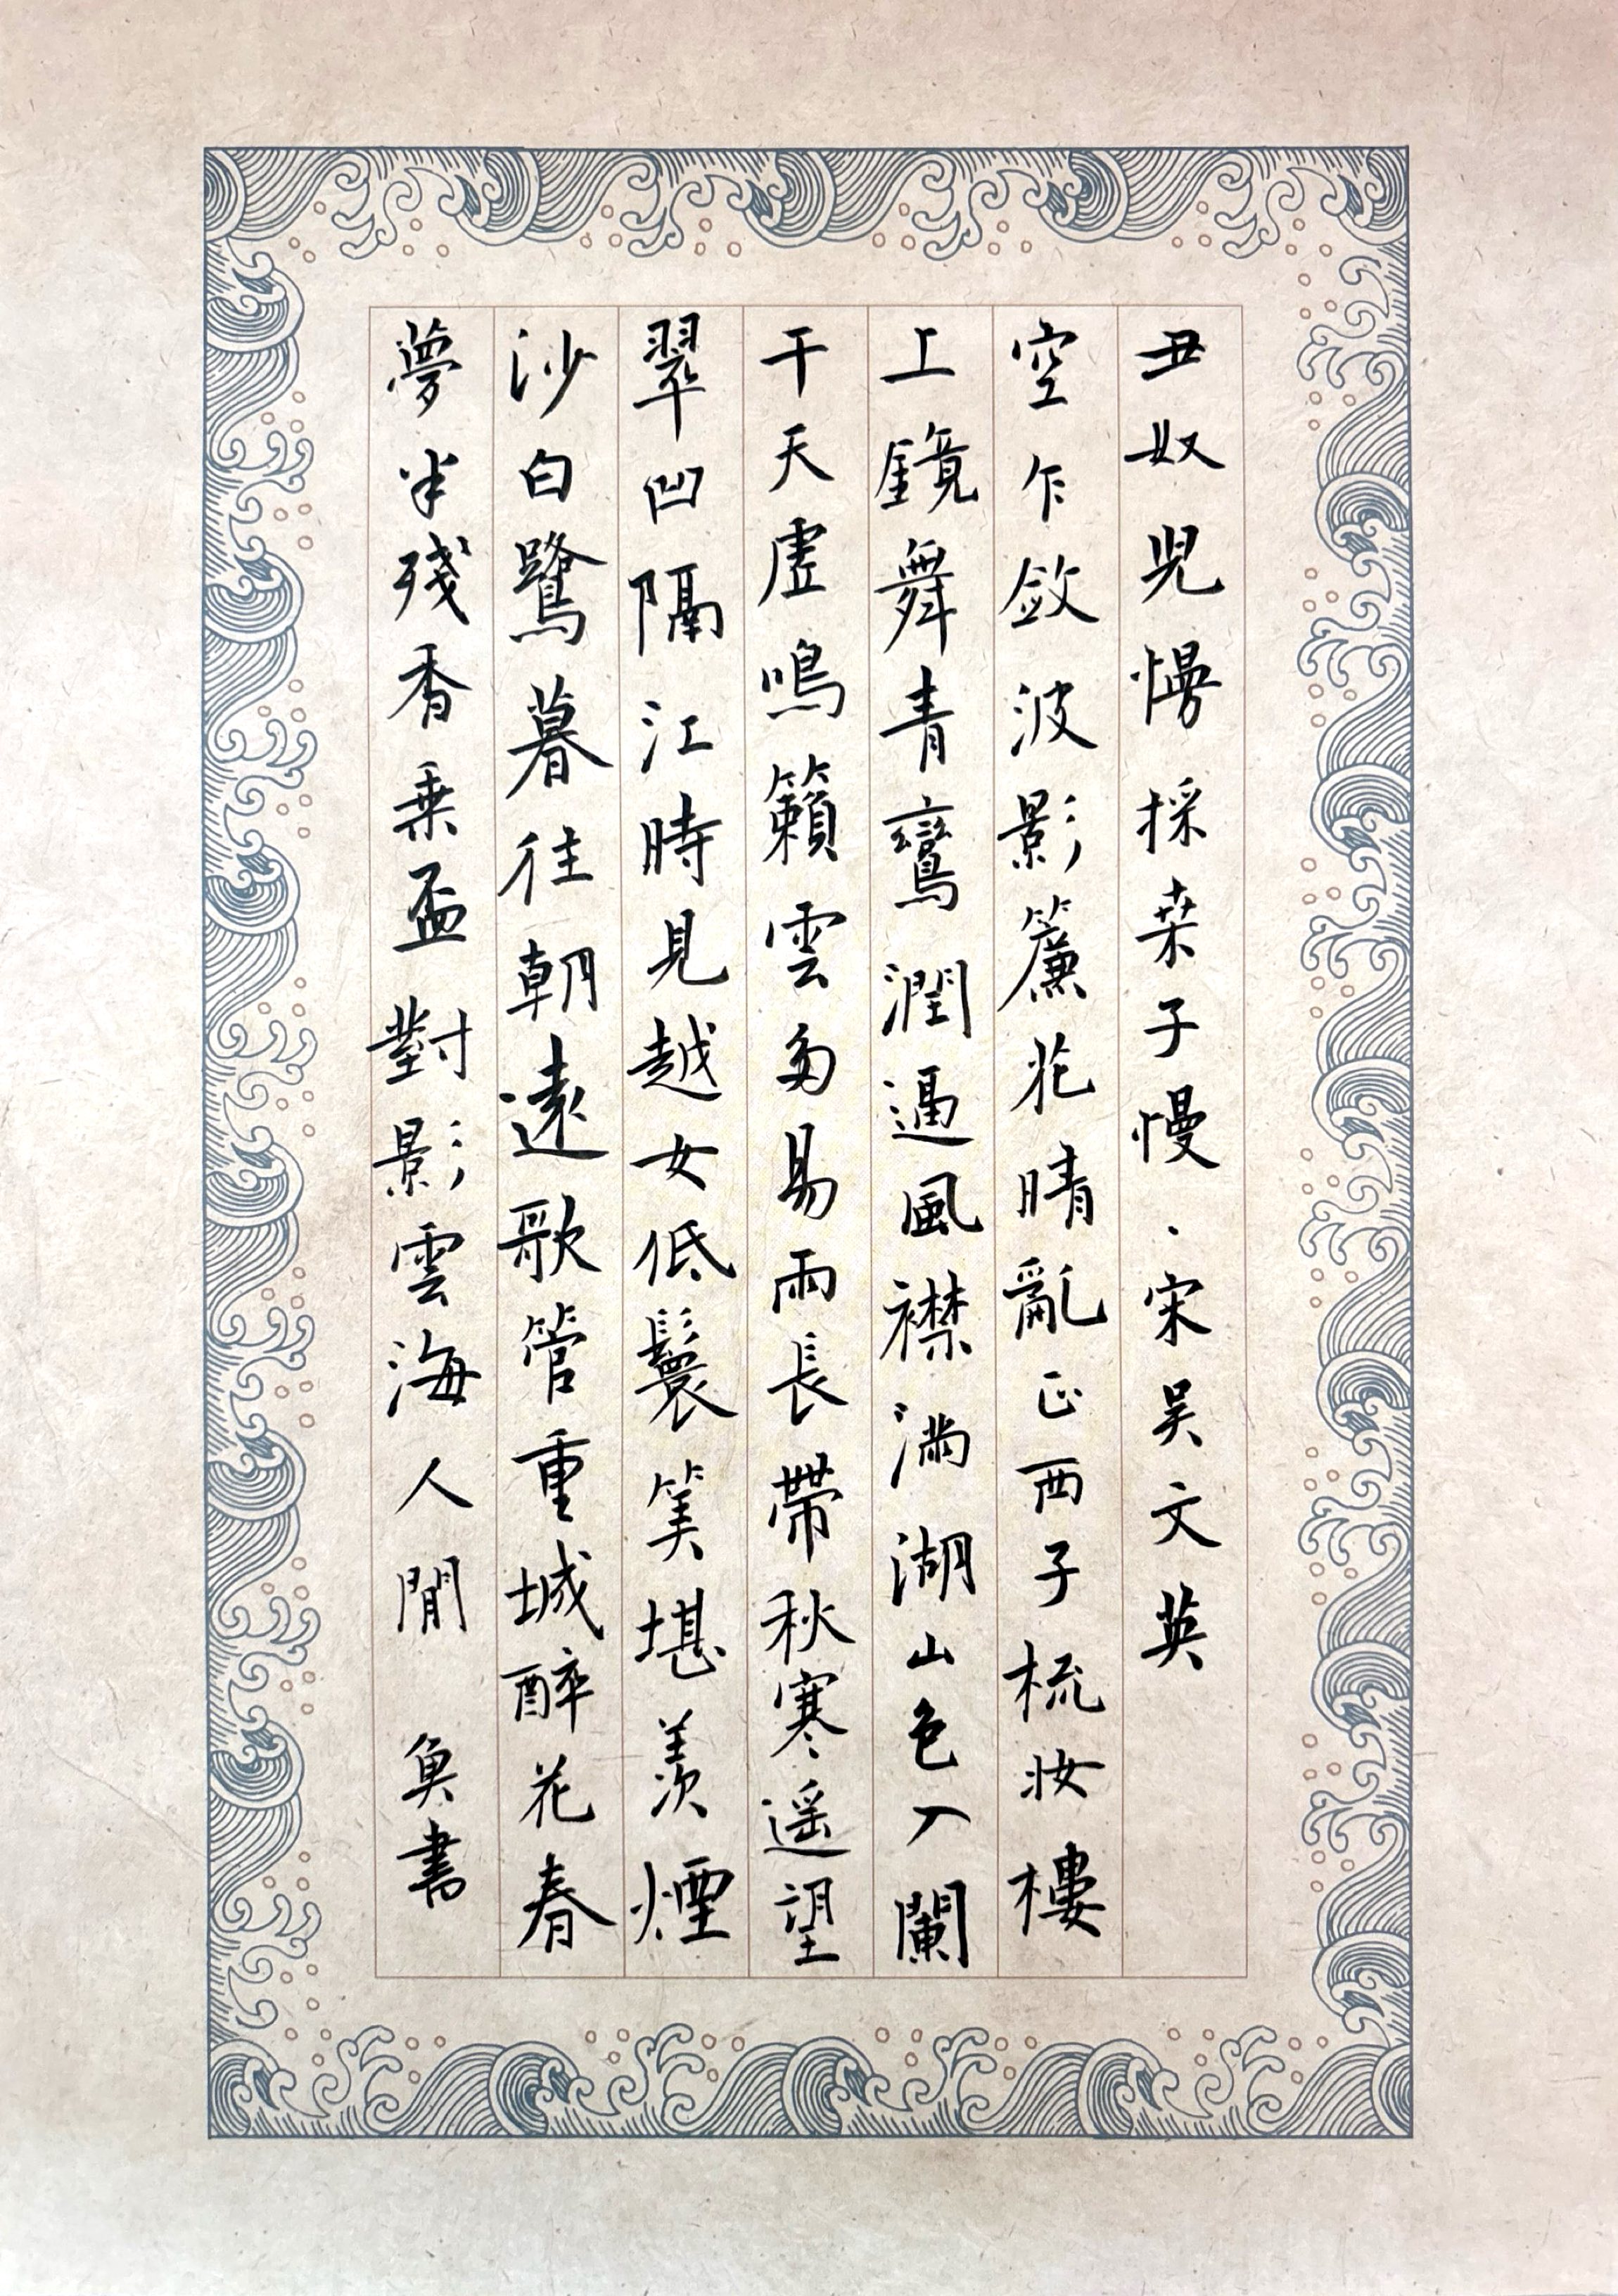 丑奴兒慢採桑子慢·宋吴文英
空乍斂波影簾花晴亂正西子梳妝樓
上鏡舞青鸞潤逼風襟滿湖山色入闌
干天虚鳴籟雲多易雨長帶秋寒遥望
翠凹隔江時見越女低鬟笑堪羨煙
沙白鷺暮往朝還歌管重城醉花春
夢半殘香乗盃對影雲海人間 魚書